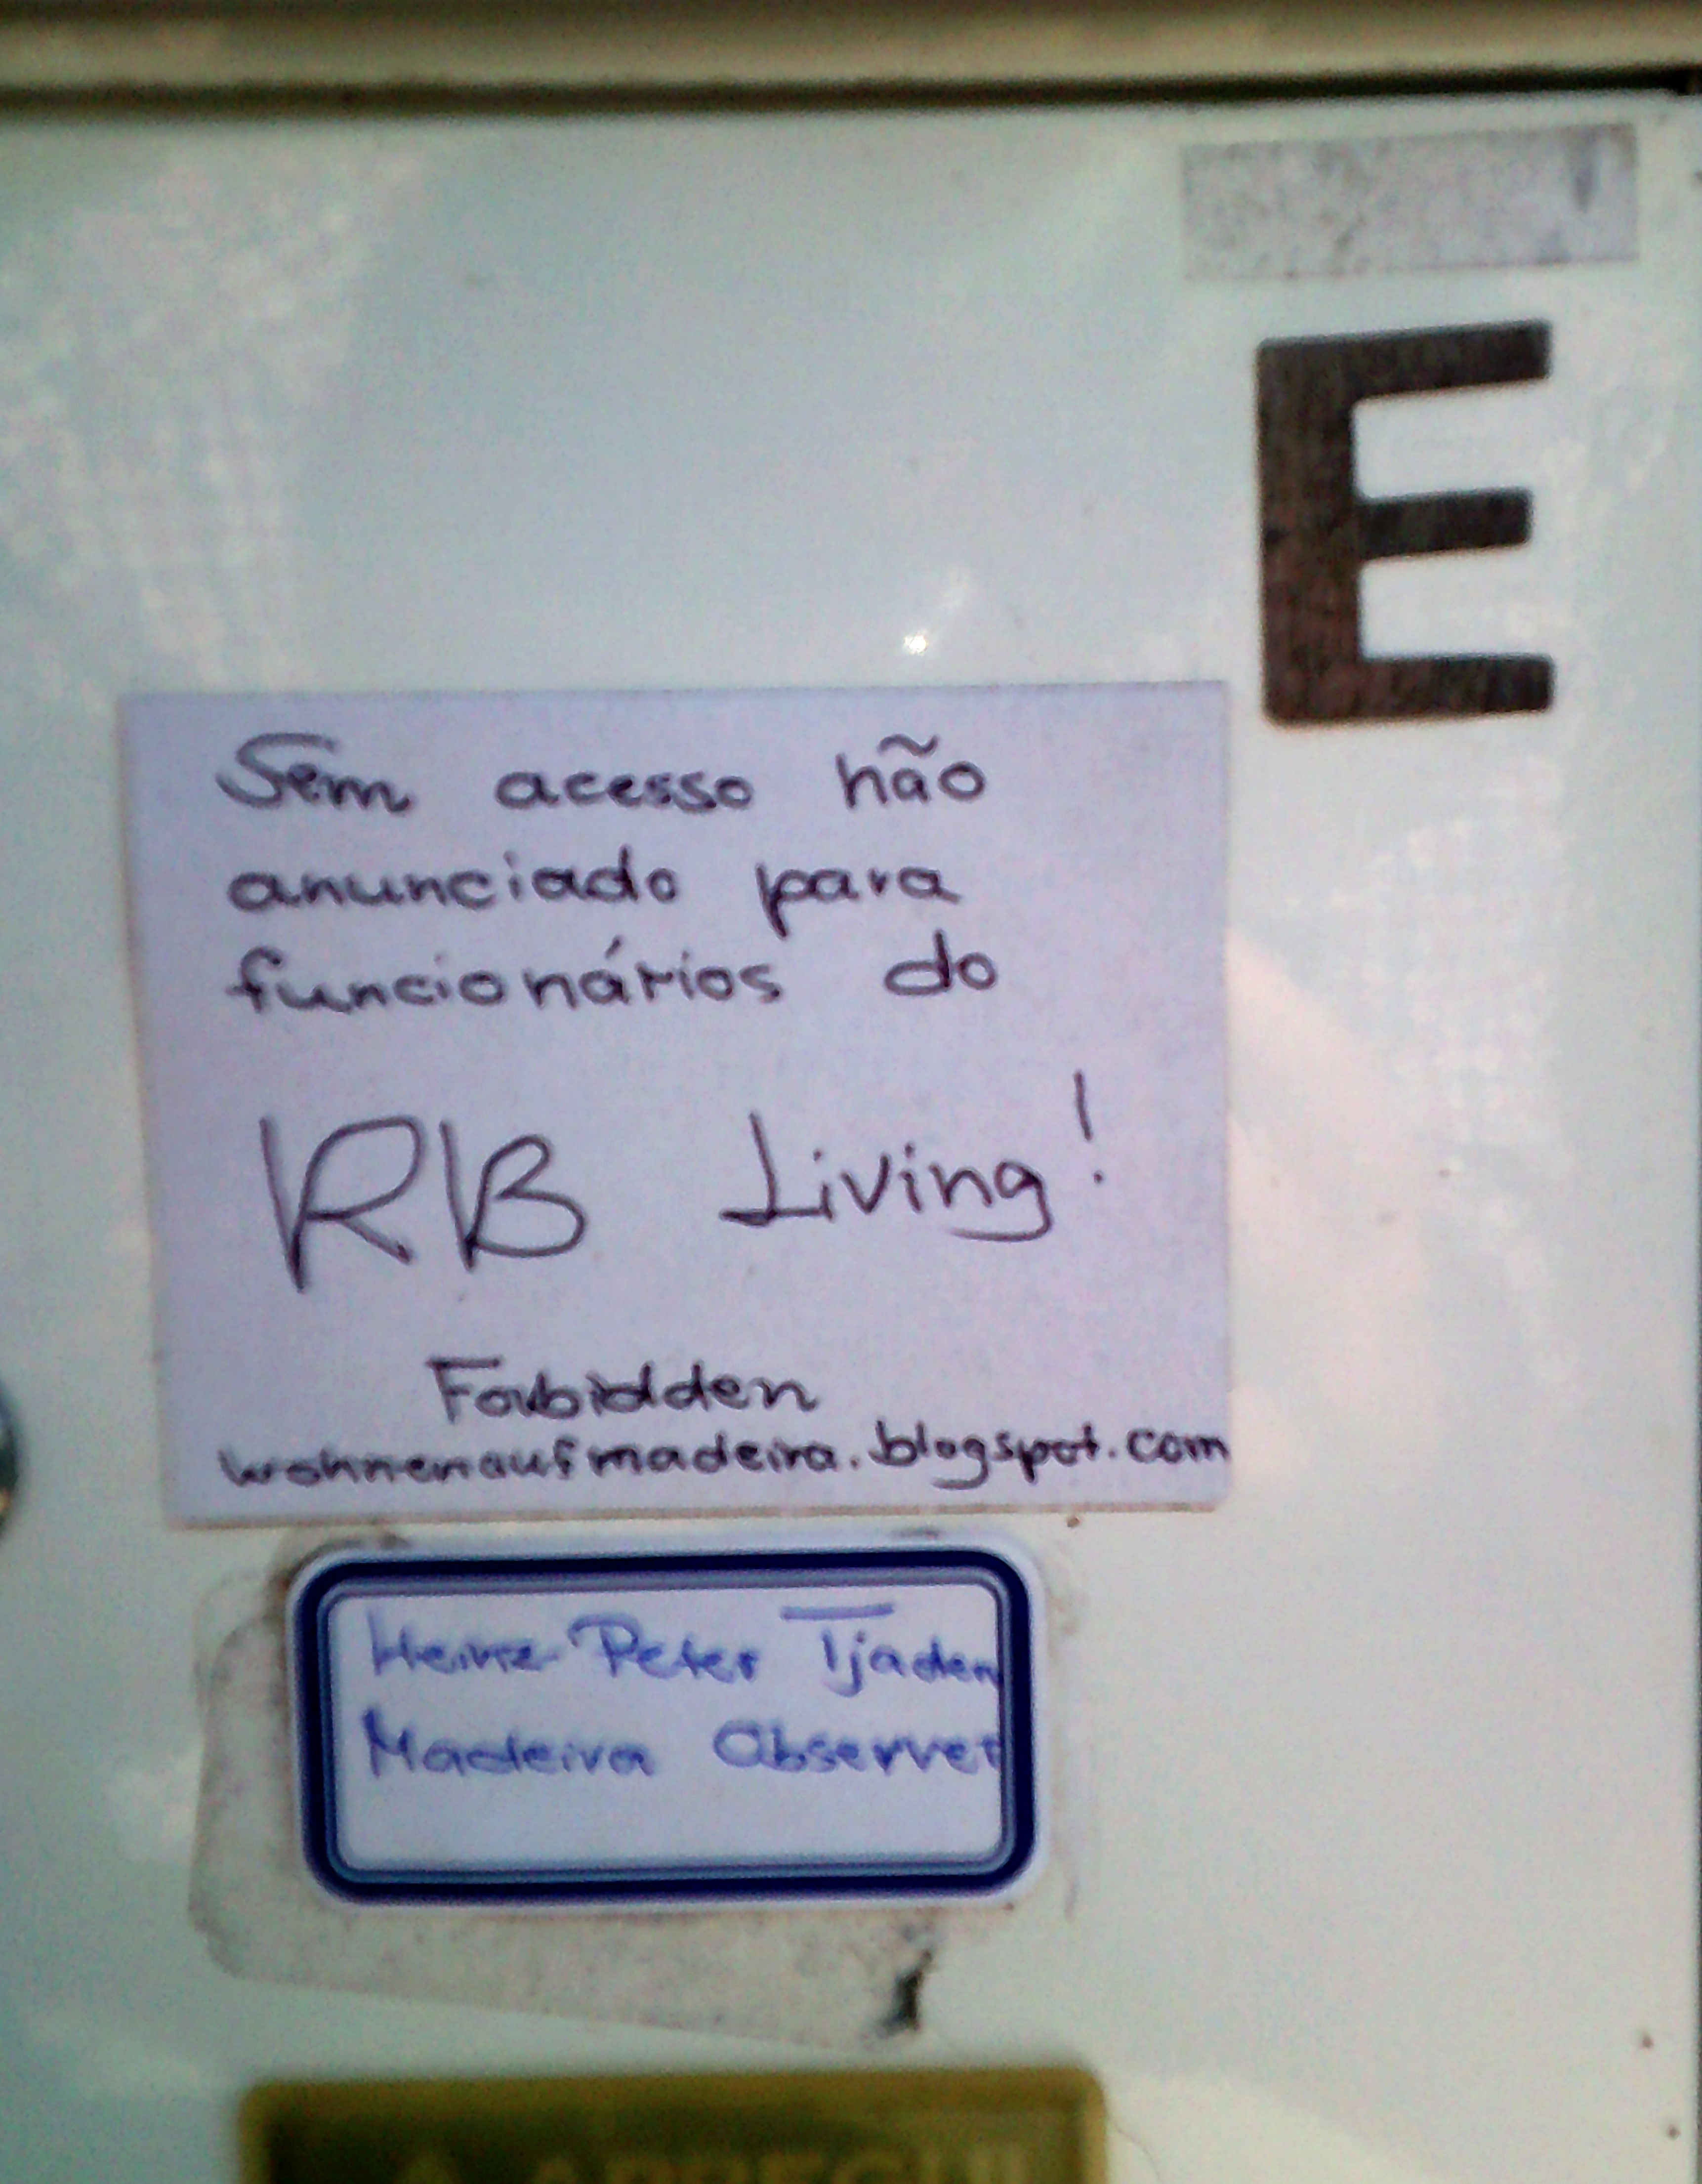 E
Sem acesso não
anunciado para
funcionários do
RB Living!
Forbidden
wohnenaufmadeira.blogspot.com
Heinz-Peter Tjaden
Madeira Observer